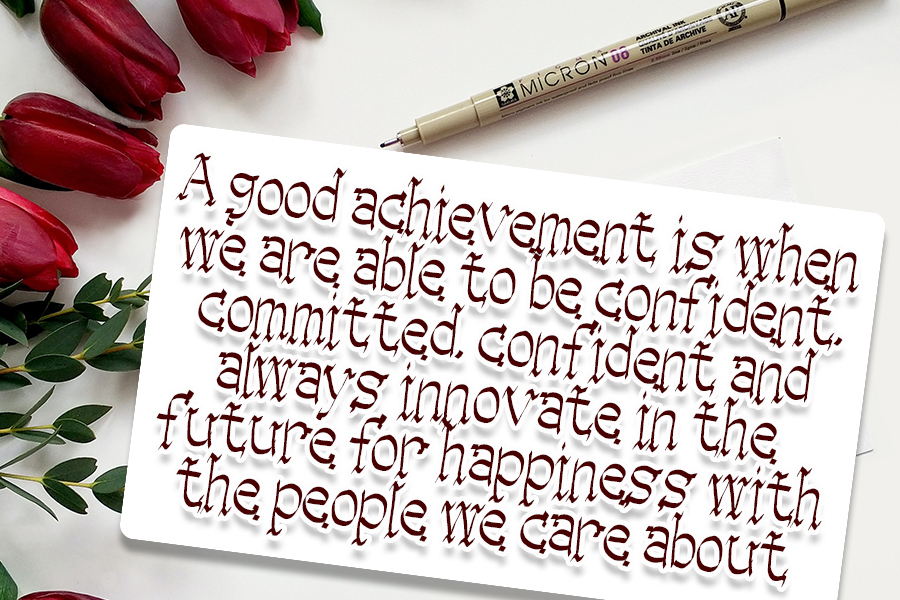 MICRON 06
ARCHIVAL INK
TINTA DE ARCHIVE
A good achievement is when
we are able to be confident.
committed. confident and
always innovate in the
future for happiness with
the people we care about